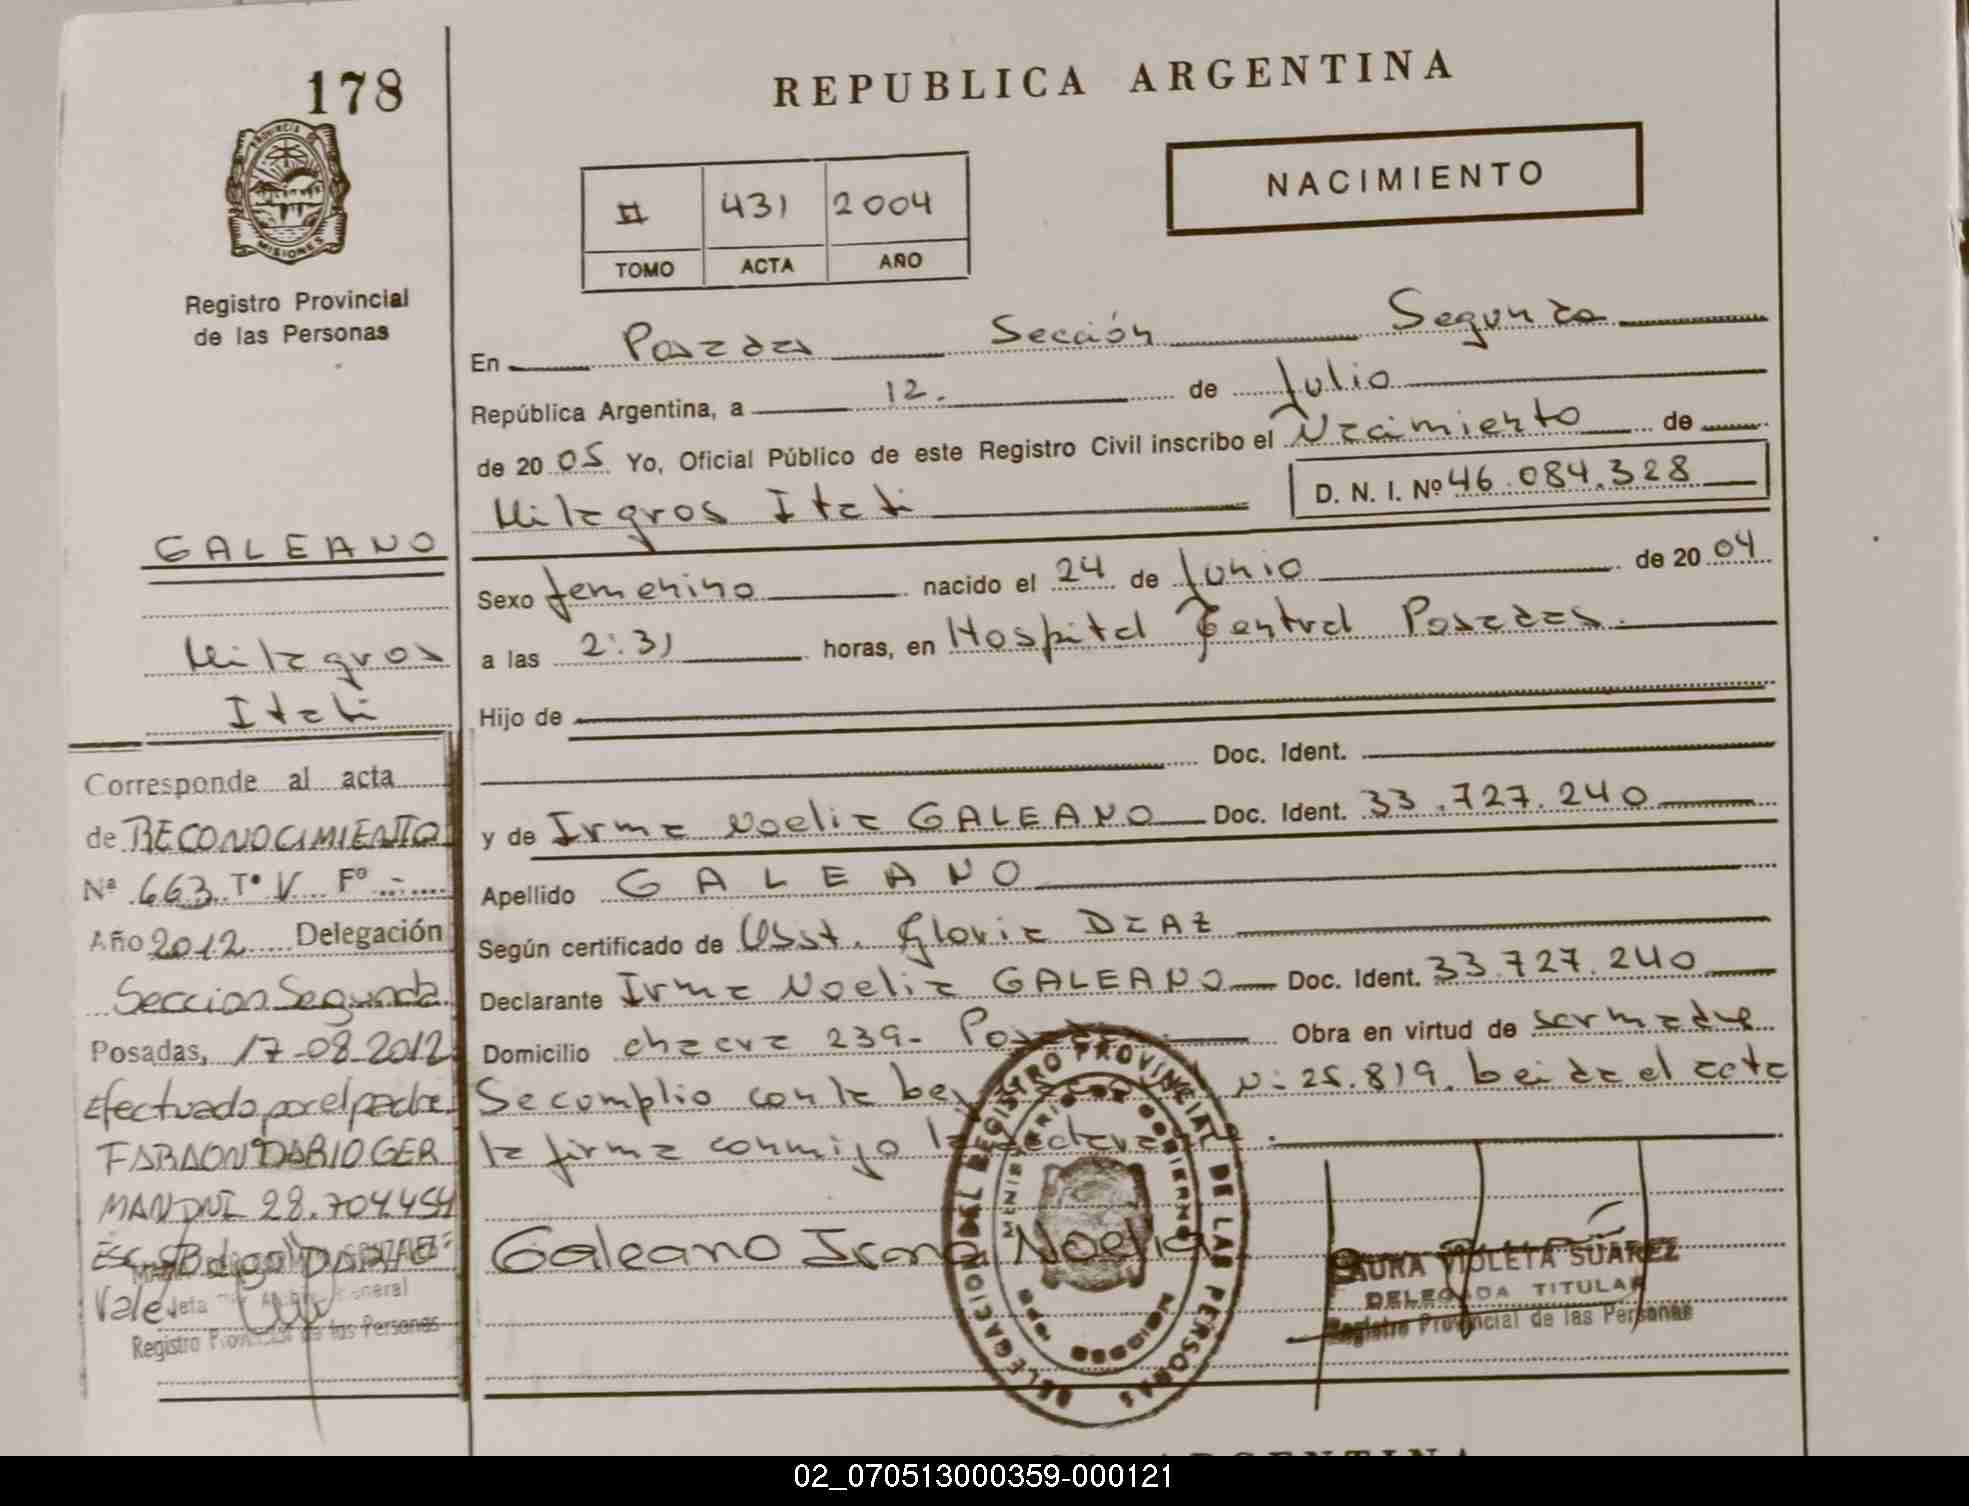 178
REPUBLICA ARGENTINA
NACIMIENTO
II 431 2004
TOMO ACTA AÑO
PROVINCIA DE
MISIONES
Registro Provincial
de las Personas
GALEANO
Milagros
Itati
En Posadas Sección Segunda
República Argentina, a 12. de Julio
de 20 05 Yo, Oficial Público de este Registro Civil inscribo el Nacimiento de
Milagros Itati D. N. I. Nº 46.084.328
Sexo femenino nacido el 24 de Junio de 20 04
a las 2:31 horas, en Hospital Central Posadas.
Hijo de
Doc. Ident.
y de Irma Noelia GALEANO Doc. Ident. 33.727.240
Apellido GALEANO
Según certificado de Obst. Gloria DIAZ
Declarante Irma Noelia GALEANO Doc. Ident. 33.727.240
Domicilio chacra 239- Posadas Obra en virtud de ser madre
Se cumplio con la Ley N: 25.819. Leida el acta
la firma conmigo la declarante.
Galeano Irma Noelia
DELEGACION DEL REGISTRO PROVINCIAL DE LAS PERSONAS
MINISTERIO DE GOBIERNO
LAURA VIOLETA SUAREZ
DELEGADA TITULAR
Registro Provincial de las Personas
Corresponde al acta
de RECONOCIMIENTO
Nª 663 Tº V Fº -
Año 2012 Delegación
Seccion Segunda
Posadas, 17-08-2012
Efectuado por el padre
FARAON DARIO GER
MAN DNI 28.704.454
Vale
Registro Provincial de las Personas
ARGENTINA
02_070513000359-000121